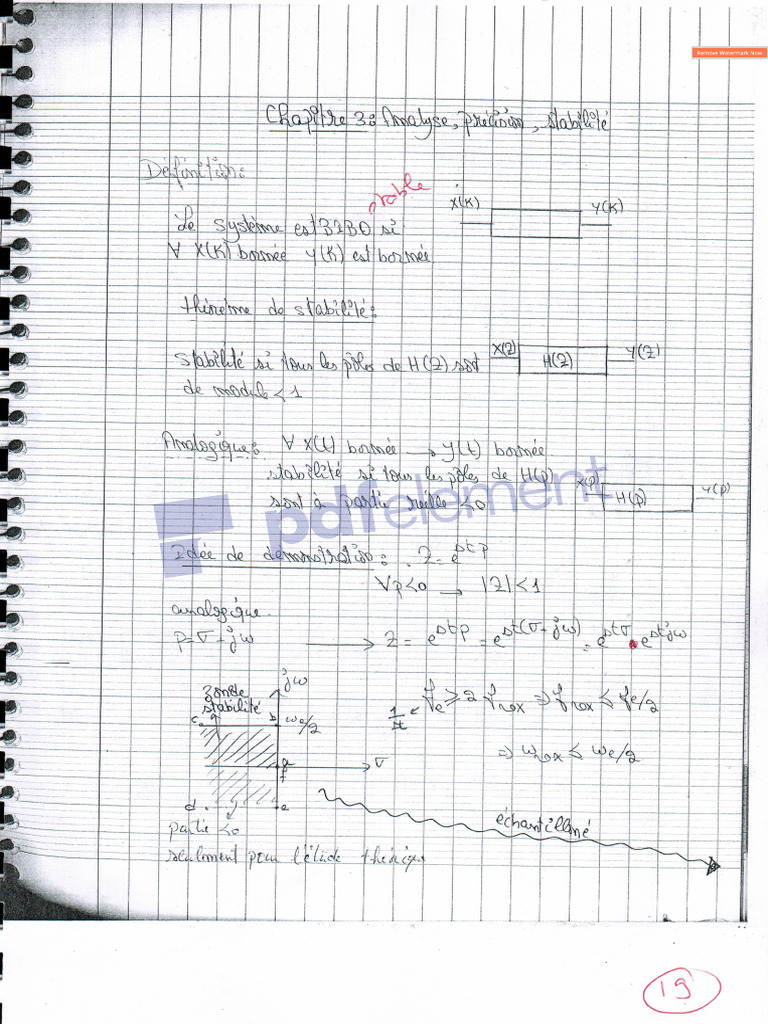 Remove Watermark Now
Chapitre 3: Analyse, précision, stabilité
Définition:
stable
Le système est BIBO si
∀ X(K) bornée y(K) est bornée
X(K) Y(K)
théorème de stabilité:
stabilité si tous les pôles de H(Z) sont
de module < 1
X(Z) H(Z) Y(Z)
Analogique: ∀ X(t) bornée → y(t) bornée
stabilité si tous les pôles de H(p)
sont à partie réelle <0
X(p) H(p) Y(p)
pdfelement
Idée de démonstration: Z = e^{Δtp}
∀p<0 → |Z|<1
analogique
P = σ + jω → Z = e^{Δtp} = e^{Δt(σ+jω)} = e^{Δtσ} . e^{Δtjω}
zone de
stabilité
jω
c b ωe/2
a σ
f
d e
partie <0
seulement pour l'étude théorique
1/Δt ← fe ≥ 2 fmax ⇒ fmax ≤ fe/2
⇒ ωmax ≤ ωe/2
échantillonné
19